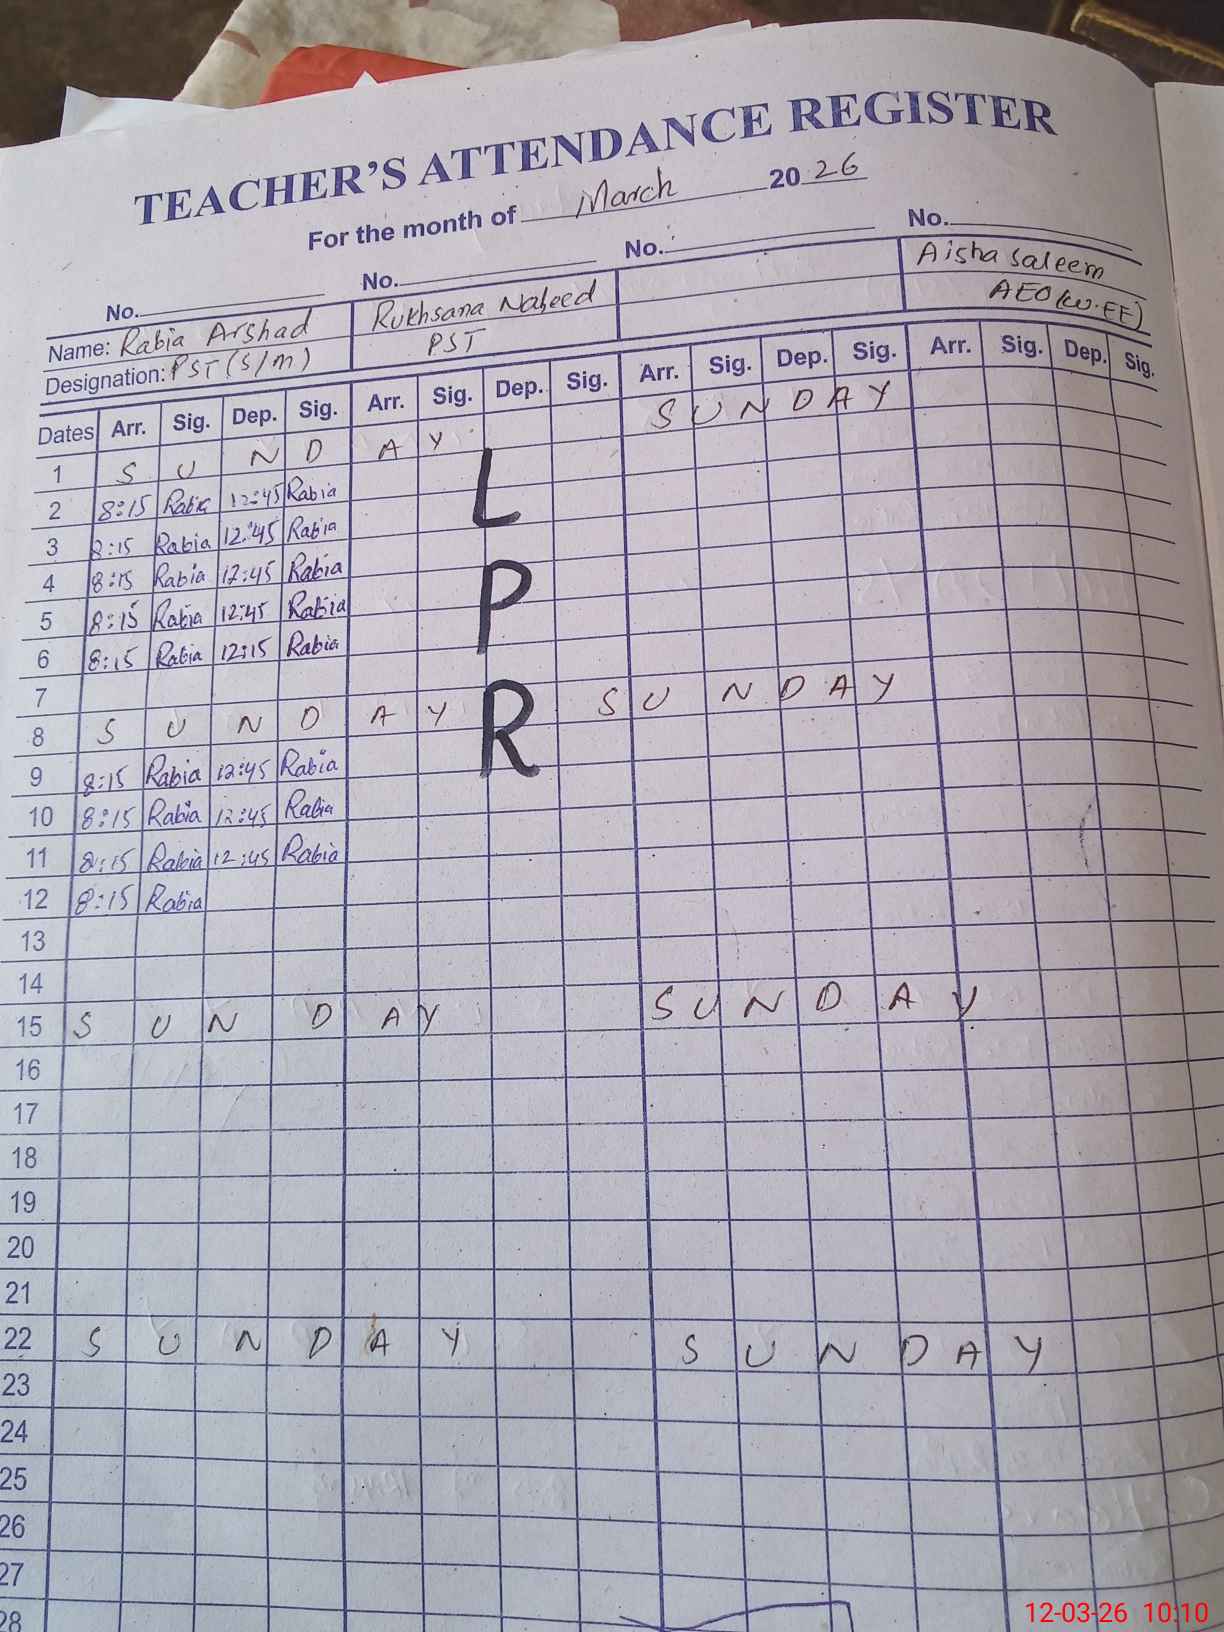 TEACHER'S ATTENDANCE REGISTER
For the month of March 2026
No. No. No. No.
Name: Rabia Arshad Rukhsana Nabeed Aisha Saleem
Designation: PST (S/m) PST AEO (W.EE)
Dates Arr. Sig. Dep. Sig. Arr. Sig. Dep. Sig. Arr. Sig. Dep. Sig. Arr. Sig. Dep. Sig.
1 SUNDAY SUNDAY
2 8:15 Rabia 12:45 Rabia L
3 8:15 Rabia 12:45 Rabia
4 8:15 Rabia 12:45 Rabia
5 8:15 Rabia 12:45 Rabia P
6 8:15 Rabia 12:15 Rabia
7
8 SUNDAY R SUNDAY
9 8:15 Rabia 12:45 Rabia
10 8:15 Rabia 12:45 Rabia
11 8:15 Rabia 12:45 Rabia
12 8:15 Rabia
13
14
15 SUNDAY SUNDAY
16
17
18
19
20
21
22 SUNDAY SUNDAY
23
24
25
26
27
28
12-03-26 10:10